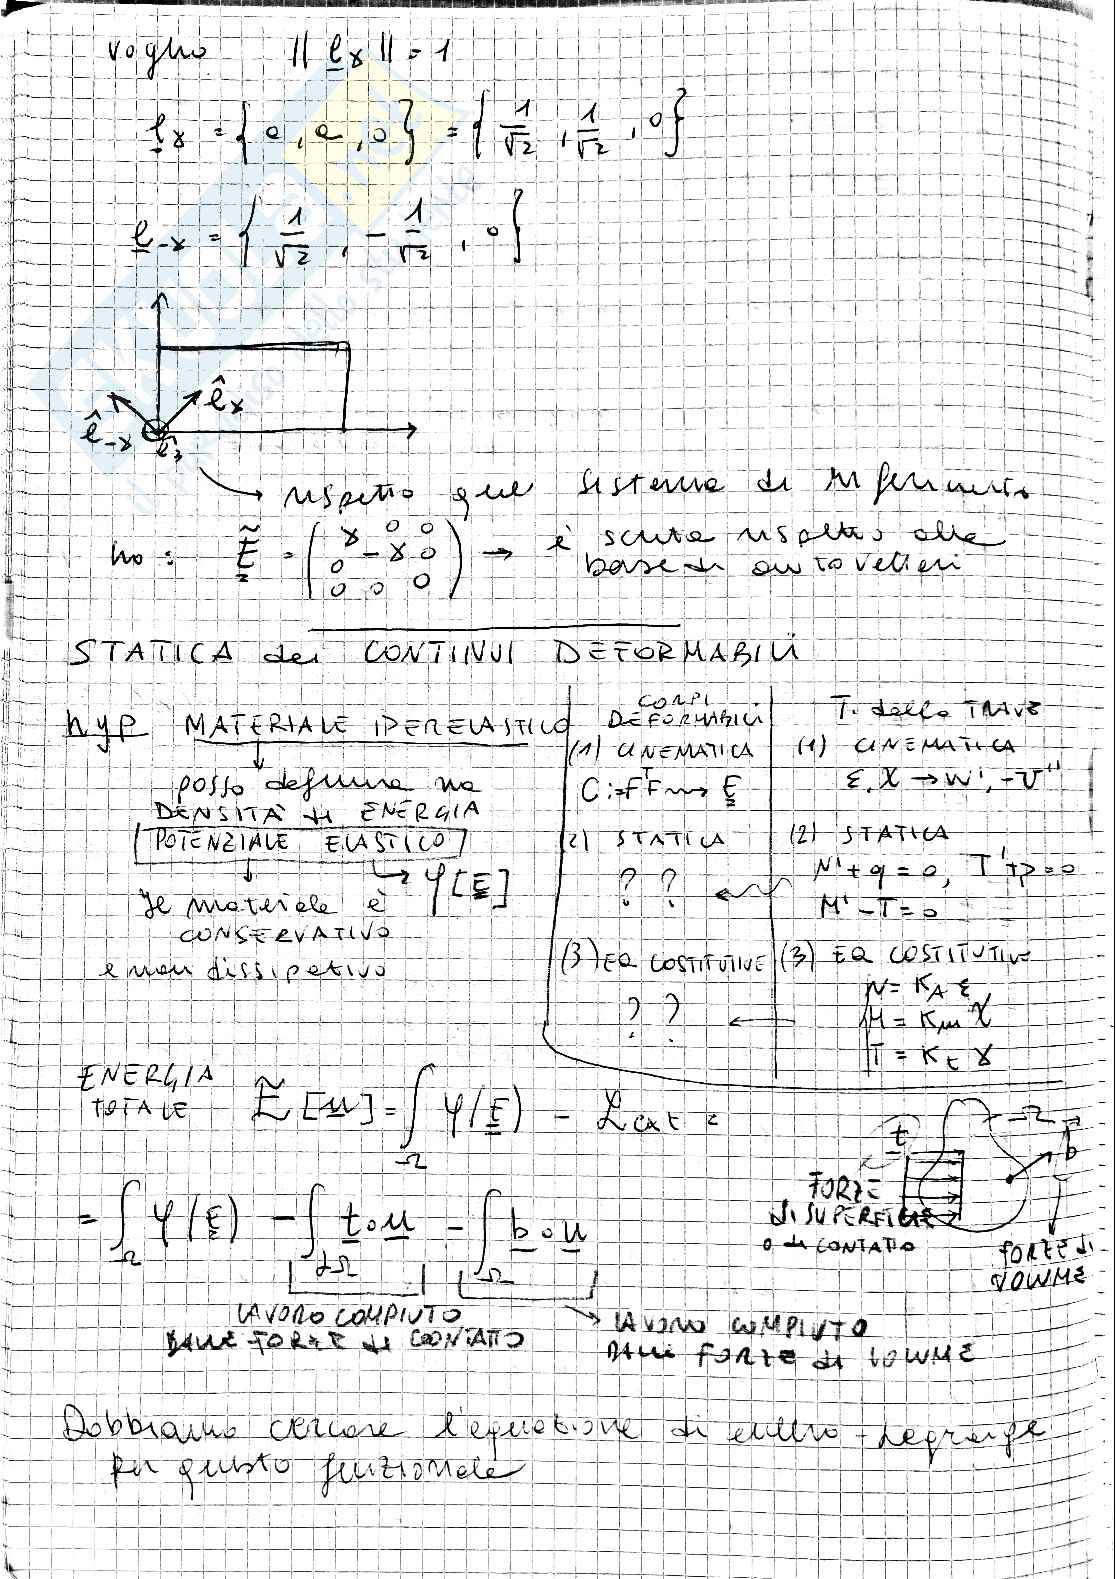 voglio ‖e_γ‖ = 1
e_γ = {a, a, 0} = {1/√2, 1/√2, 0}
e_-γ = {1/√2, -1/√2, 0}
ê_γ
ê_-γ
ê_3
→ rispetto quel sistema di riferimento
ho: Ẽ = (γ 0 0
0 -γ 0
0 0 0) → è scritta rispetto alla
base di autovettori
STATICA dei CONTINUI DEFORMABILI
hyp MATERIALE IPERELASTICO
posso definire una
DENSITÀ di ENERGIA
POTENZIALE ELASTICO
→ φ[E]
Il materiale è
CONSERVATIVO
e non dissipativo
CORPI
DEFORMABILI
(1) CINEMATICA
C := FᵀF ⇝ E
(2) STATICA
? ?
(3) EQ COSTITUTIVE
? ?
T. della TRAVE
(1) CINEMATICA
ε, χ → w', -v''
(2) STATICA
N' + q = 0, T' + p = 0
M' - T = 0
(3) EQ COSTITUTIVE
N = K_A ε
M = K_m χ
T = K_t γ
ENERGIA
TOTALE Ẽ[u] = ∫_Ω φ(E) - L_ext =
= ∫_Ω φ(E) - ∫_∂Ω t∘u - ∫_Ω b∘u
LAVORO COMPIUTO
DALLE FORZE di CONTATTO
→ LAVORO COMPIUTO
DALLE FORZE di VOLUME
t
Ω
b
FORZE
di SUPERFICIE
o di CONTATTO
FORZE di
VOLUME
Dobbiamo cercare l'equazione di eulero-Lagrange
per questo funzionale